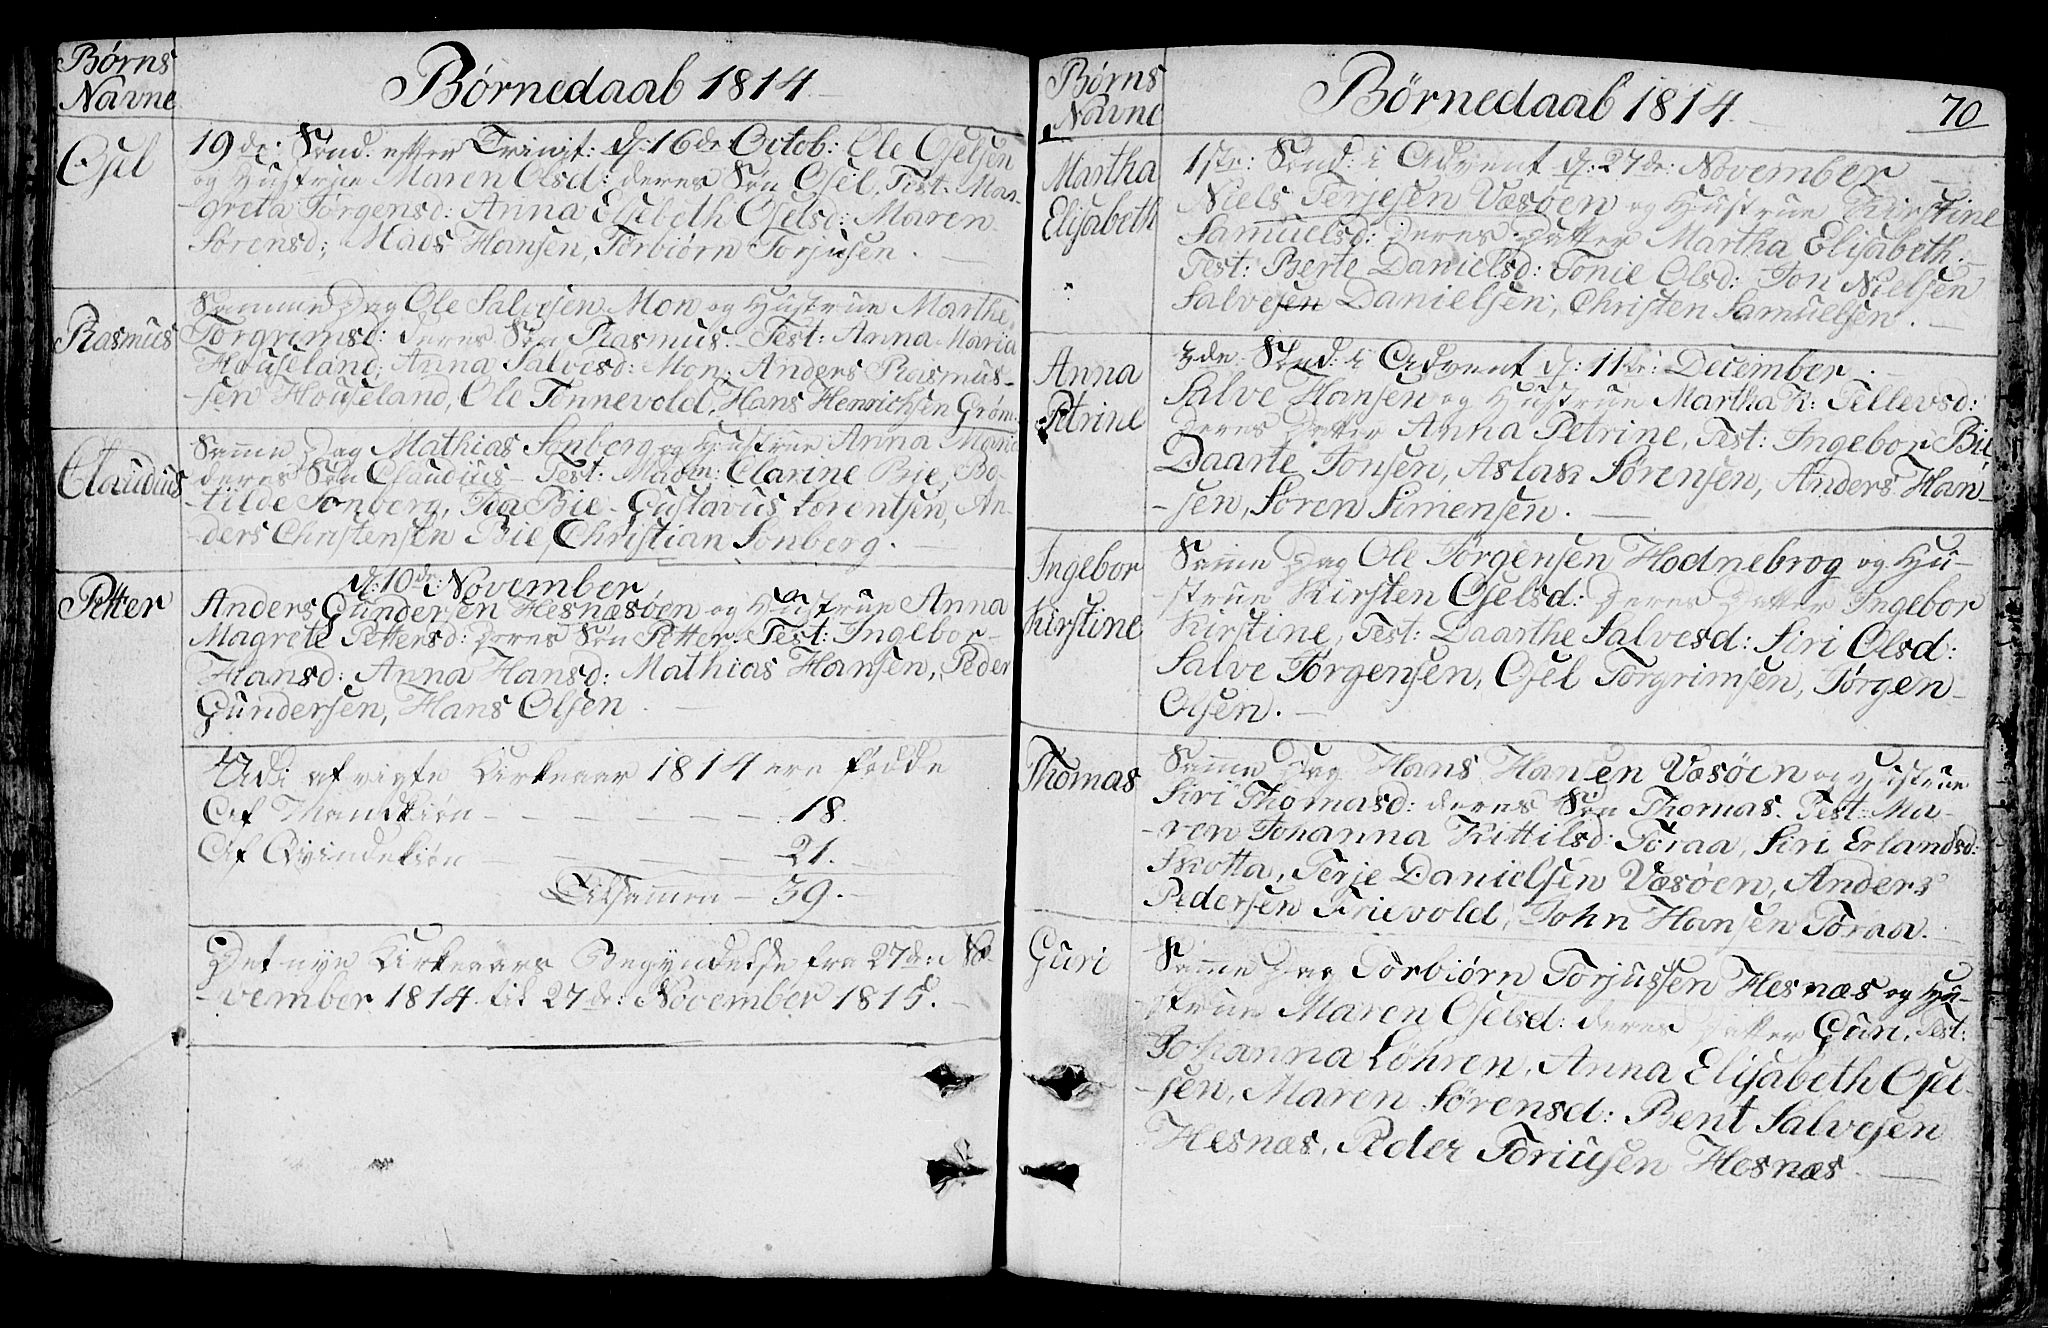 Børns
Navne
Børnedaab 1814
Osel
19de: Sønd: efter Trinit: d: 16de Octob: Ole Oselsen
og Hustrue Maren Olsd: deres Søn Osel. Test: Mar-
greta Jørgensd: Anna Elisebeth Oselsd: Maren
Sørensd: Mads Hansen, Torbiørn Torjusen.
Rasmus
Samme Dag Ole Salvesen Mon og Hustrue Marthe
Torgrimsd: deres Søn Rasmus. Test: Anna Maria
Houseland, Anna Salvesd: Mon, Anders Rasmus-
sen Houseland, Ole Tønnevold, Hans Henrichsen Grøm.
Claudius
Samme Dag Mathias Sonberg og Hustrue Anna Marie
deres Søn Claudius - Test: Madm: Clarine Bie, Bo-
-tilde Sonberg, Bie - Gustavus Lorentsen, An-
-ders Christensen Bie, Christian Sonberg.
Petter
d: 10de November
Anders Gundersen Hesnæsøen og Hustrue Anna
Magrete Pettersd: deres Søn Petter. Test: Ingebor
Hansd: Anna Hansd: Mathias Hansen, Peder
Gundersen, Hans Olsen.
Udi afvigte Kirkeaar 1814 ere fødde
Af Mandkiøn - - - - - - 18.
Af Qvindekiøn - - - - - 21.
Tilsamen - 39.
Det nye Kirkeaars Begyndelse fra 27de: No-
-vember 1814 til 27de: November 1815.
Børns
Navne
Børnedaab 1814.
70
Martha
Elisabeth
1ste: Sønd: i Advent d: 27de: November
Niels Terjesen Væsøen og Hustrue Kirstine
Samuelsd: deres Datter Martha Elisabeth.
Test: Berte Danielsd: Tonie Olsd: Jon Nielsen
Salvesen Danielsen, Christen Samuelsen.
Anna
Petrine
3de Sønd: i Advent d: 11te: December.
Salve Hansen og Hustrue Martha K: Tellevsd:
deres Datter Anna Petrine, Test: Ingebor Bie,
Daarte Jonsen, Aslak Sørensen, Anders Han-
-sen, Søren Simensen.
Ingebor
Kirstine
Samme Dag Ole Jørgensen Hodnebrog og Hu-
-strue Kirsten Oselsd: deres Datter Ingebor
Kirstine, Test: Daarthe Salvesd: Siri Olsd:
Salve Jørgensen, Osel Torgrimsen, Jørgen
Olsen.
Thomas
Samme Dag Hans Hansen Væsøen og Hustrue
Siri Thomasd: deres Søn Thomas. Test: Ma-
-ren Johanna Kittilsd: Toraa, Siri Erlandsd:
Skotta, Terje Danielsen Væsøen, Anders
Pedersen Frievold, John Hansen Toraa.
Guri
Samme Dag Torbiørn Torjussen Hesnæs og Hu-
-strue Maren Oselsd: deres Datter Guri. Test:
Johanna Løhren, Anna Elisabeth Osel-
-sen, Maren Sørensd: Bent Salvesen
Hesnæs, Peder Toriusen Hesnæs.